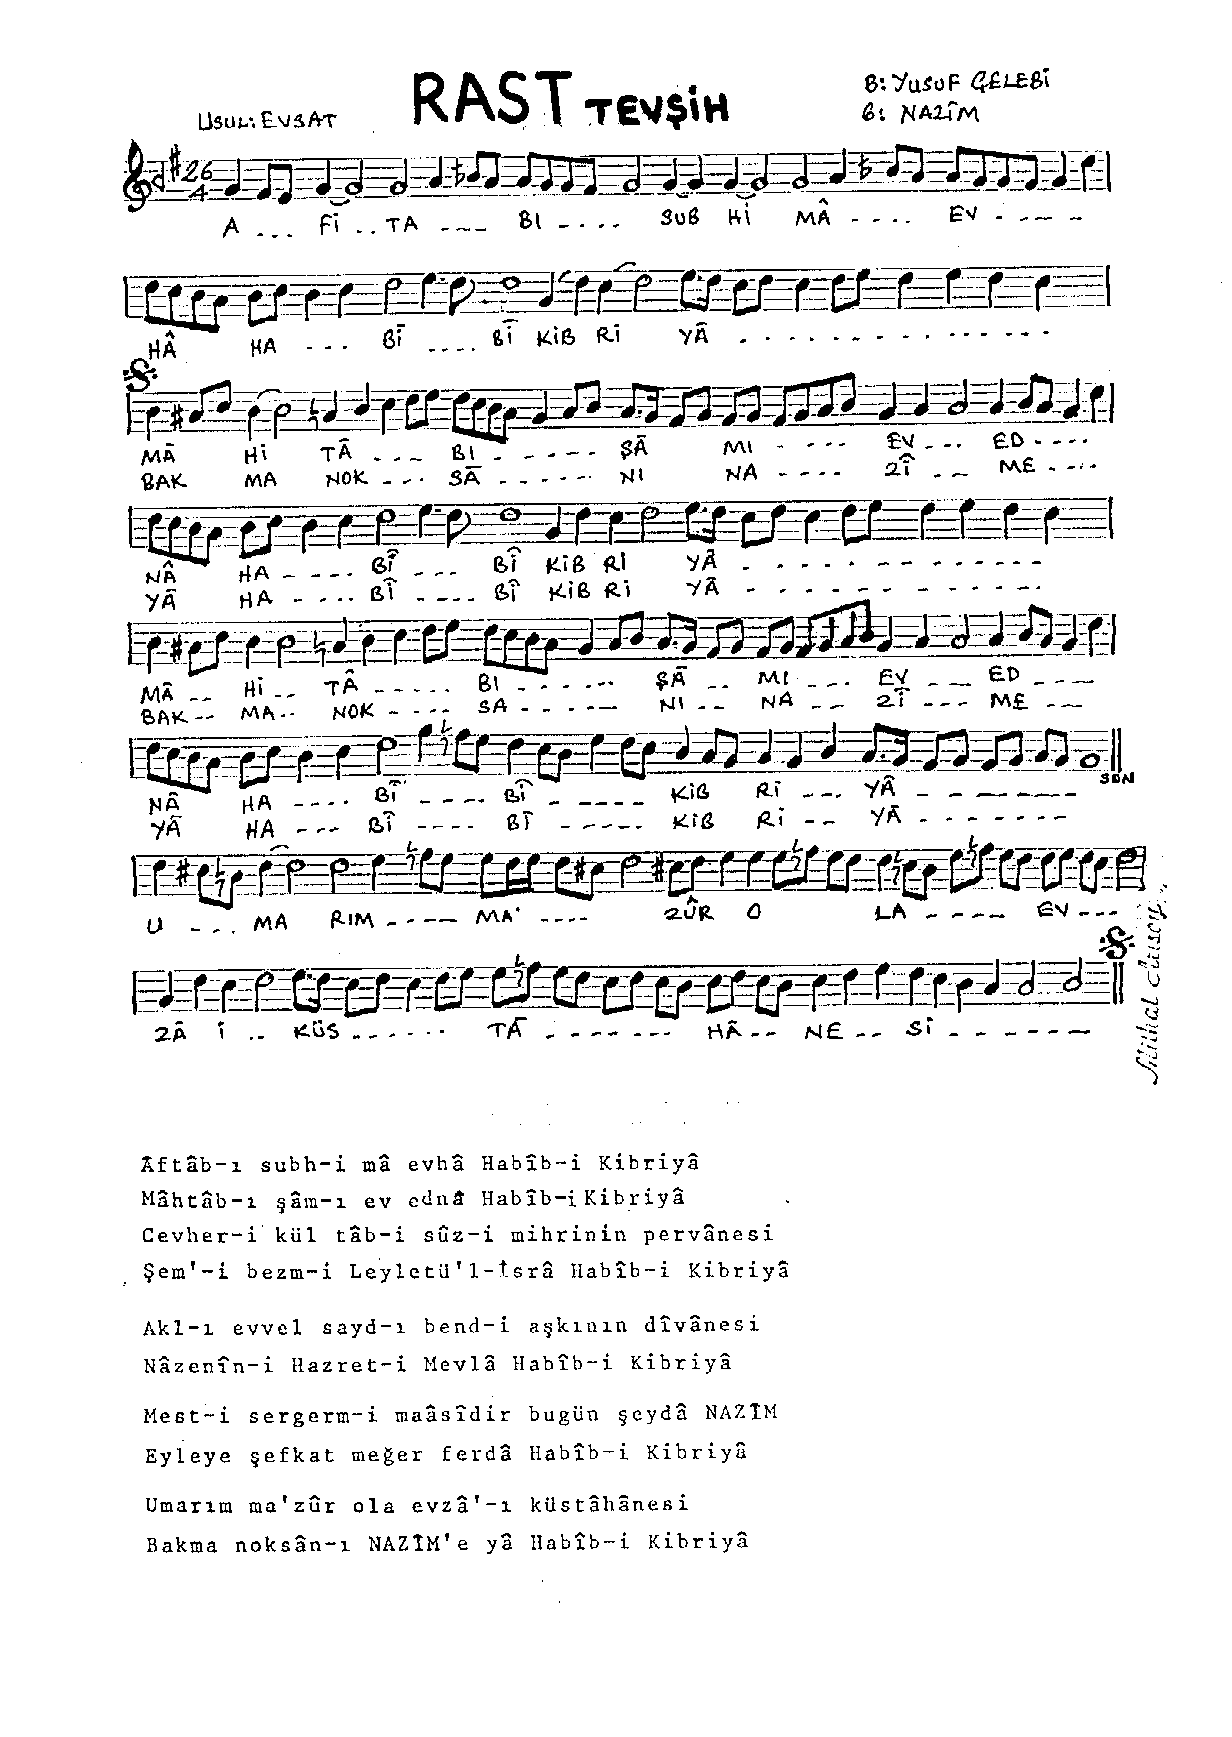 RAST TEVŞİH
USUL: EVSAT
B: YUSUF ÇELEBİ
G: NAZÎM
26
4
A ... Fİ .. TA ---- BI ----- SUB Hİ MÂ ---- EV -----
HÂ HA --- BÎ .... BÎ KİB RÎ YÂ - - - - - - - - - - - -
MÂ Hİ TÂ ---- BI ------ ŞÂ MI ----- EV --- ED -----
BAK MA NOK --- SÂ ------ NI NA ---- ZÎ --- ME ----
NÂ HA ---- BÎ ---- BÎ KİB RÎ YÂ - - - - - - - - - - -
YÂ HA ---- BÎ ---- BÎ KİB Rİ YÂ - - - - - - - - - - -
MÂ -- Hİ -- TÂ ------ BI ------ ŞÂ -- MI ---- EV --- ED ----
BAK -- MA -- NOK ---- SA ------ NI -- NA -- ZÎ --- ME ---
NÂ HA ---- BÎ ---- BÎ - ----- KİB Rİ --- YÂ - - - - - - -
SON
YÂ HA --- BÎ ---- BÎ ----- KİB Rİ -- YÂ - - - - - - -
U ---- MA RIM ----- MA' ---- ZÛR O LA ----- EV ---
ZÂ İ .. KÜS ------ TÂ ------- HÂ -- NE -- Sİ - - - - - - -
Âftâb-ı subh-i mâ evhâ Habîb-i Kibriyâ
Mâhtâb-ı şâm-ı ev ednâ Habîb-i Kibriyâ
Cevher-i kül tâb-i sûz-i mihrinin pervânesi
Şem'-i bezm-i Leyletü'l-İsrâ Habîb-i Kibriyâ
Akl-ı evvel sayd-ı bend-i aşkının dîvânesi
Nâzenîn-i Hazret-i Mevlâ Habîb-i Kibriyâ
Mest-i sergerm-i maâsîdir bugün şeydâ NAZÎM
Eyleye şefkat meğer ferdâ Habîb-i Kibriyâ
Umarım ma'zûr ola evzâ'-ı küstâhânesi
Bakma noksân-ı NAZÎM'e yâ Habîb-i Kibriyâ